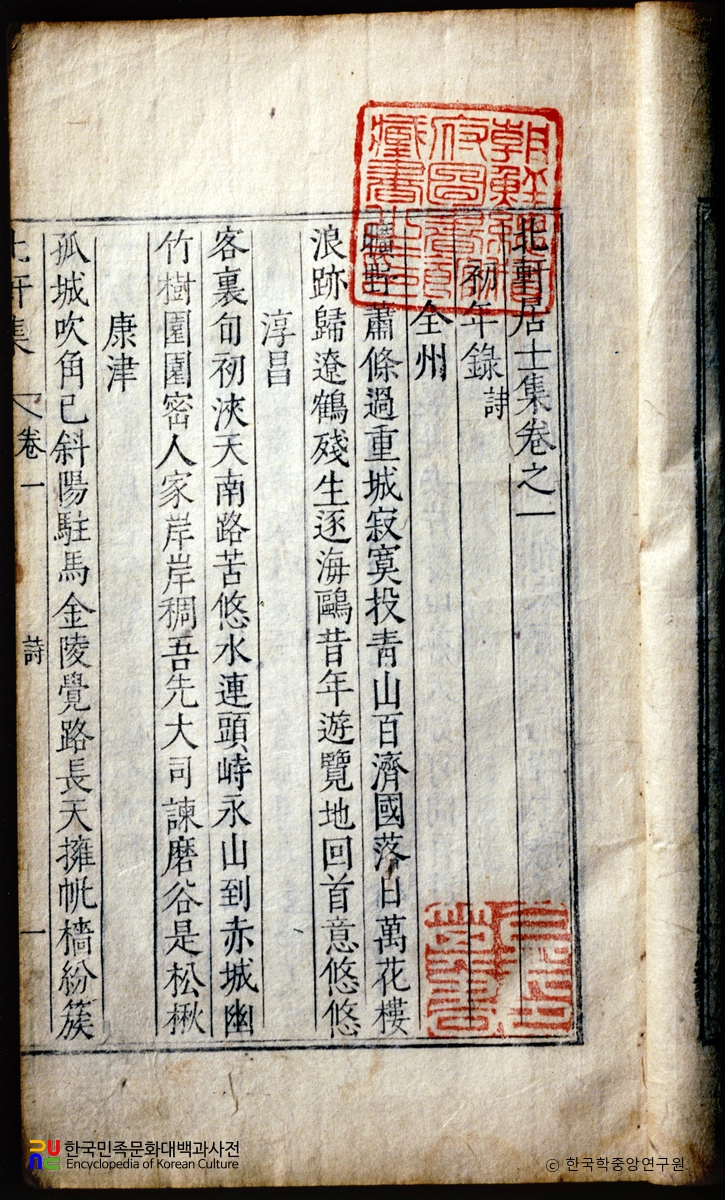 北軒居士集卷之一
初年錄 詩
全州
曠野蕭條過重城寂寞投青山百濟國落日萬花樓
浪跡歸遼鶴殘生逐海鷗昔年遊覽地回首意悠悠
淳昌
客裏旬初浹天南路苦悠水連頭峙永山到赤城幽
竹樹園園密人家岸岸稠吾先大司諫磨谷是松楸
康津
孤城吹角已斜陽駐馬金陵覺路長天擁帆檣紛簇
北軒集 卷一 詩 一
朝鮮總督府圖書館藏書之印
한국민족문화대백과사전
Encyclopedia of Korean Culture
© 한국학중앙연구원